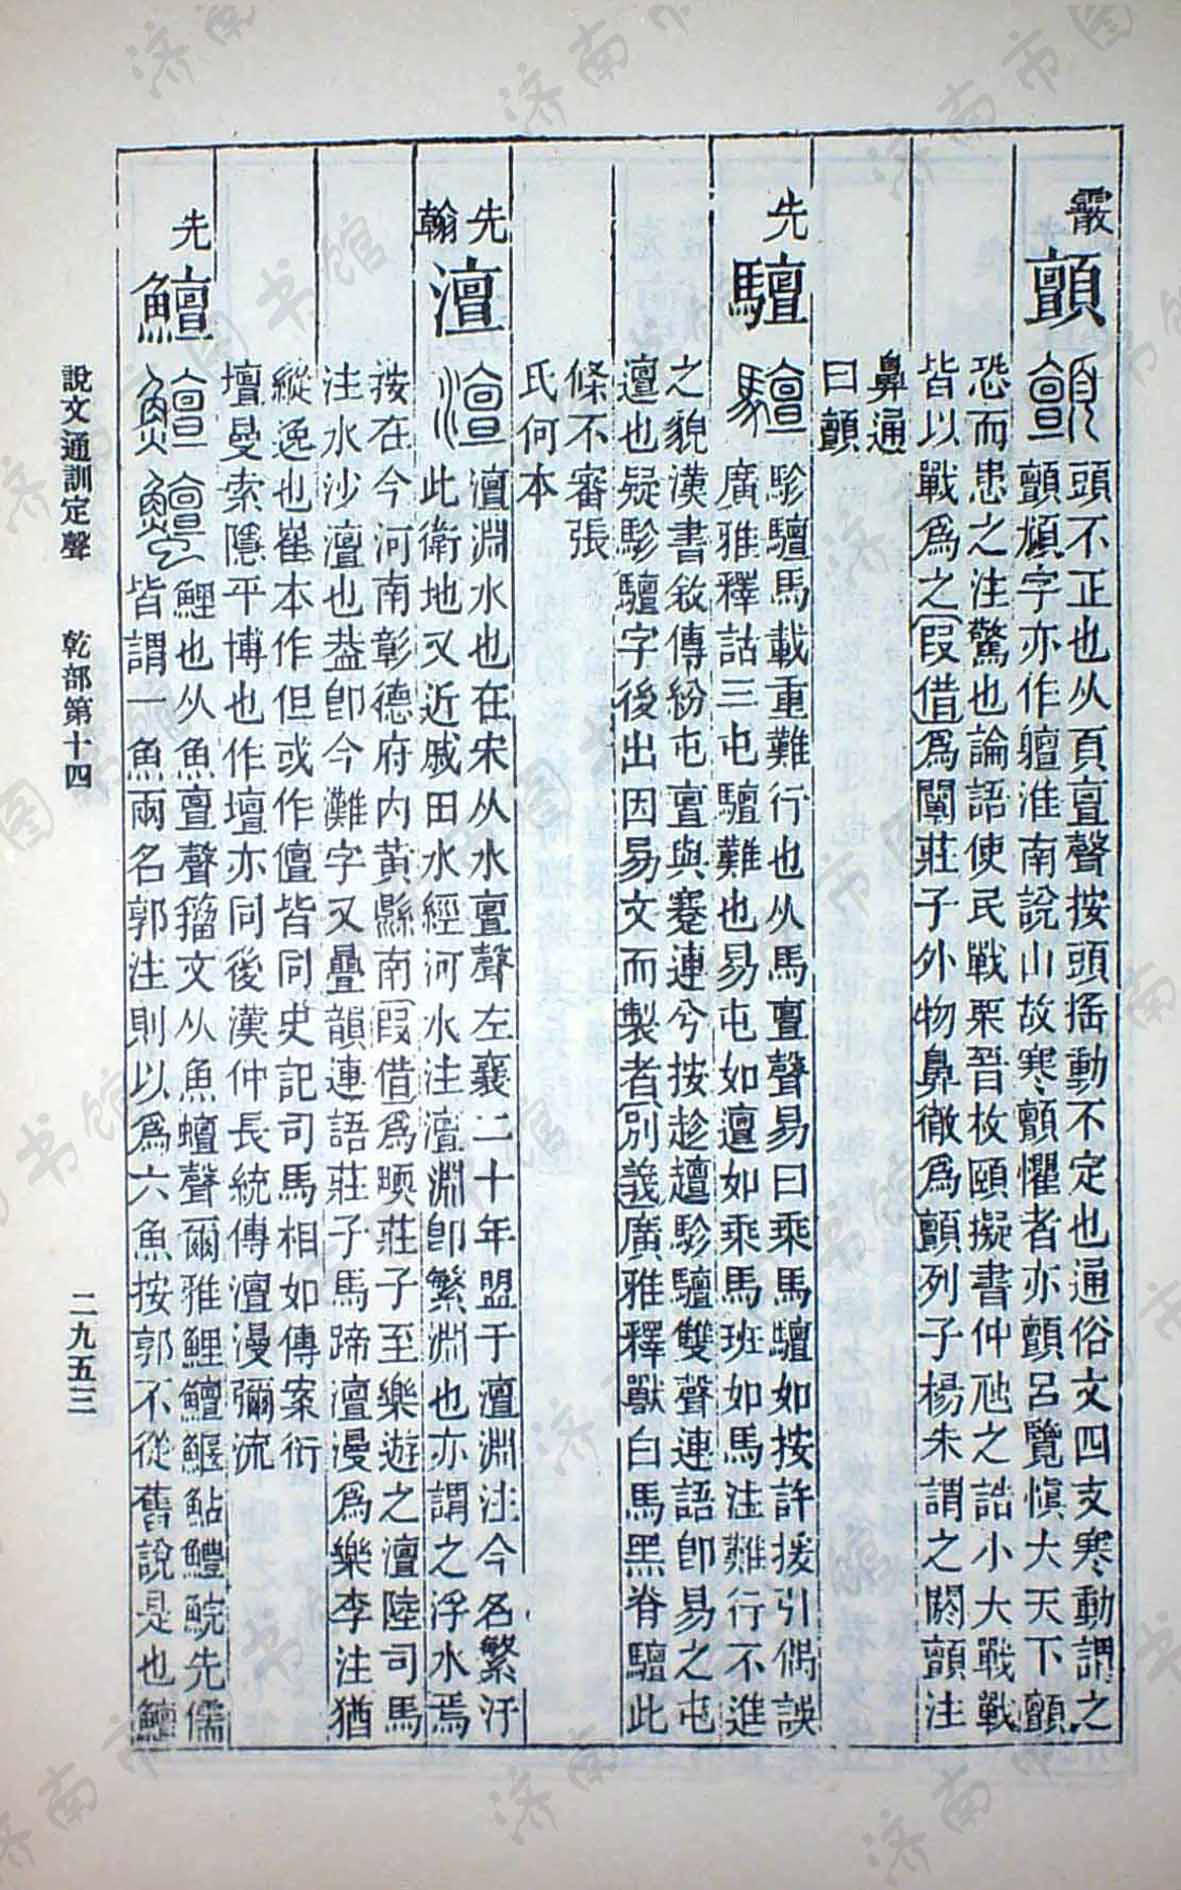 霰
顫
頭不正也从頁亶聲按頭搖動不定也通俗文四支寒動謂之
顫頄字亦作䡀淮南說山故寒顫懼者亦顫呂覽愼大天下顫
恐而患之注驚也論語使民戰栗吾枚頤擬書仲虺之誥小大戰戰
皆以戰爲之叚借爲闡莊子外物鼻徹爲顫列子楊朱謂之閼顫注
鼻通
曰顫
先
驙
駗驙馬載重難行也从馬亶聲易曰乘馬驙如按許援引偶誤
廣雅釋詁三屯驙難也易屯如邅如乘馬班如馬注難行不進
之貌漢書敘傳紛屯亶與蹇連兮按趁䟢駗驙雙聲連語卽易之屯
邅也疑駗驙字後出因易文而製者別義廣雅釋獸白馬黑脊驙此
條不審張
氏何本
先
翰
澶
澶淵水也在宋从水亶聲左襄二十年盟于澶淵注今名繁汙
此衛地又近戚田水經河水注澶淵卽繁淵也亦謂之浮水焉
按在今河南彰德府内黃縣南叚借爲㬉莊子至樂遊之澶陸司馬
注水沙澶也葢卽今灘字又疊韻連語莊子馬蹄澶漫爲樂李注猶
縱逸也崔本作但或作儃皆同史記司馬相如傳案衍
壇曼索隱平博也作壇亦同後漢仲長統傳澶漫彌流
先
鱣
鯉也从魚亶聲籀文从魚蟺聲爾雅鯉鱣鰋鮎鱧鯇先儒
皆謂一魚兩名郭注則以爲六魚按郭不從舊說是也鱣
說文通訓定聲 乾部第十四 二九五三